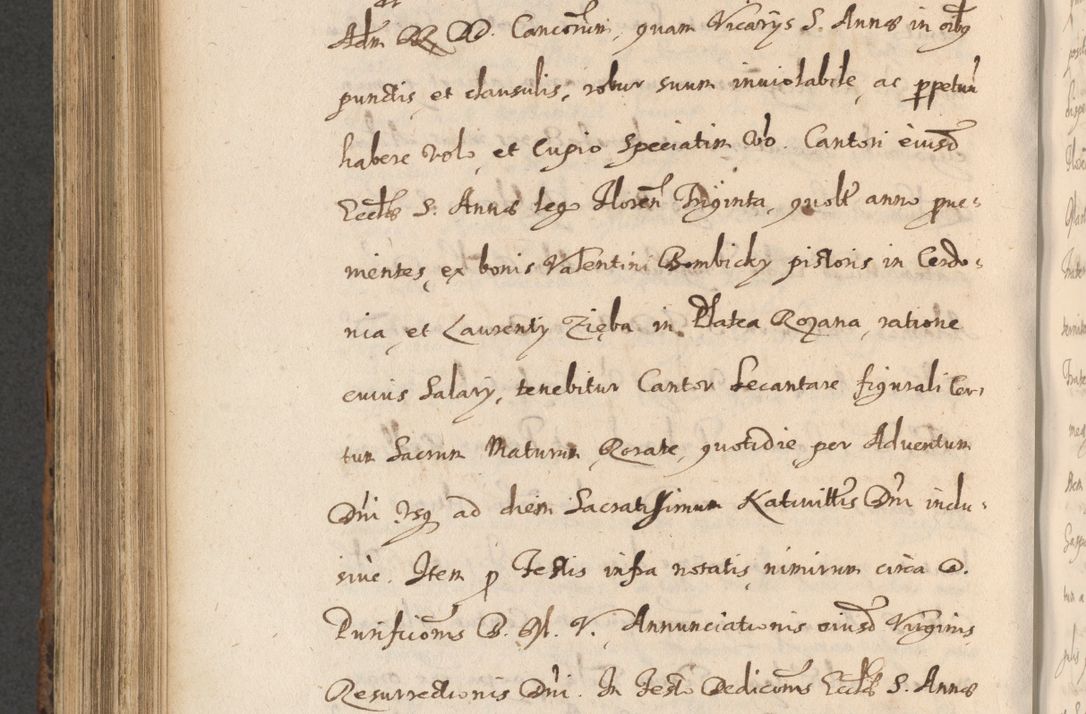 Adm RR DD. Canconum, quam Vicarys S. Annæ in oibq
punctis, et clausulis, robur suum inuiolabile, ac ppetuu
habere volo, et Cupio speciatim Vbo. Cantori eiusd
Eccles S. Annæ lego Floren Triginta, quolt anno proue=
nientes, ex bonis Valentini Bombicky pistoris in Cerdo=
nia, et Laurenty Zięba in Platea Rozana, ratione
cuius Salary, tenebitur Cantor Decantare figurali Cer=
tum Sacrum Maturum Rorate, quotidie per Aduentum
Dni Vsq ad diem Sacratissimum Natiuittis Dni inclu=
siue. Item p Festis infra notatis, nimirum circa D.
Purificonis B. M. V. Annunciationis eiusd Virginis,
Resurrectionis Dni. In Festo Dediconis Eccles S. Annæ